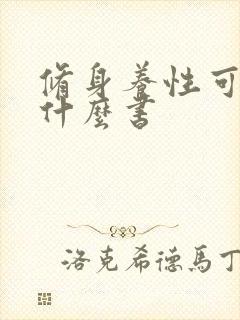 脩身養性可
什麼書
洛克希德馬丁